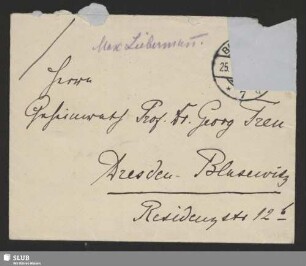 Max Liebermann.
25.
7
Herrn
Geheimrath Prof. Dr. Georg Treu
Dresden-Blasewitz
Residenzstr 12 b
SLUB